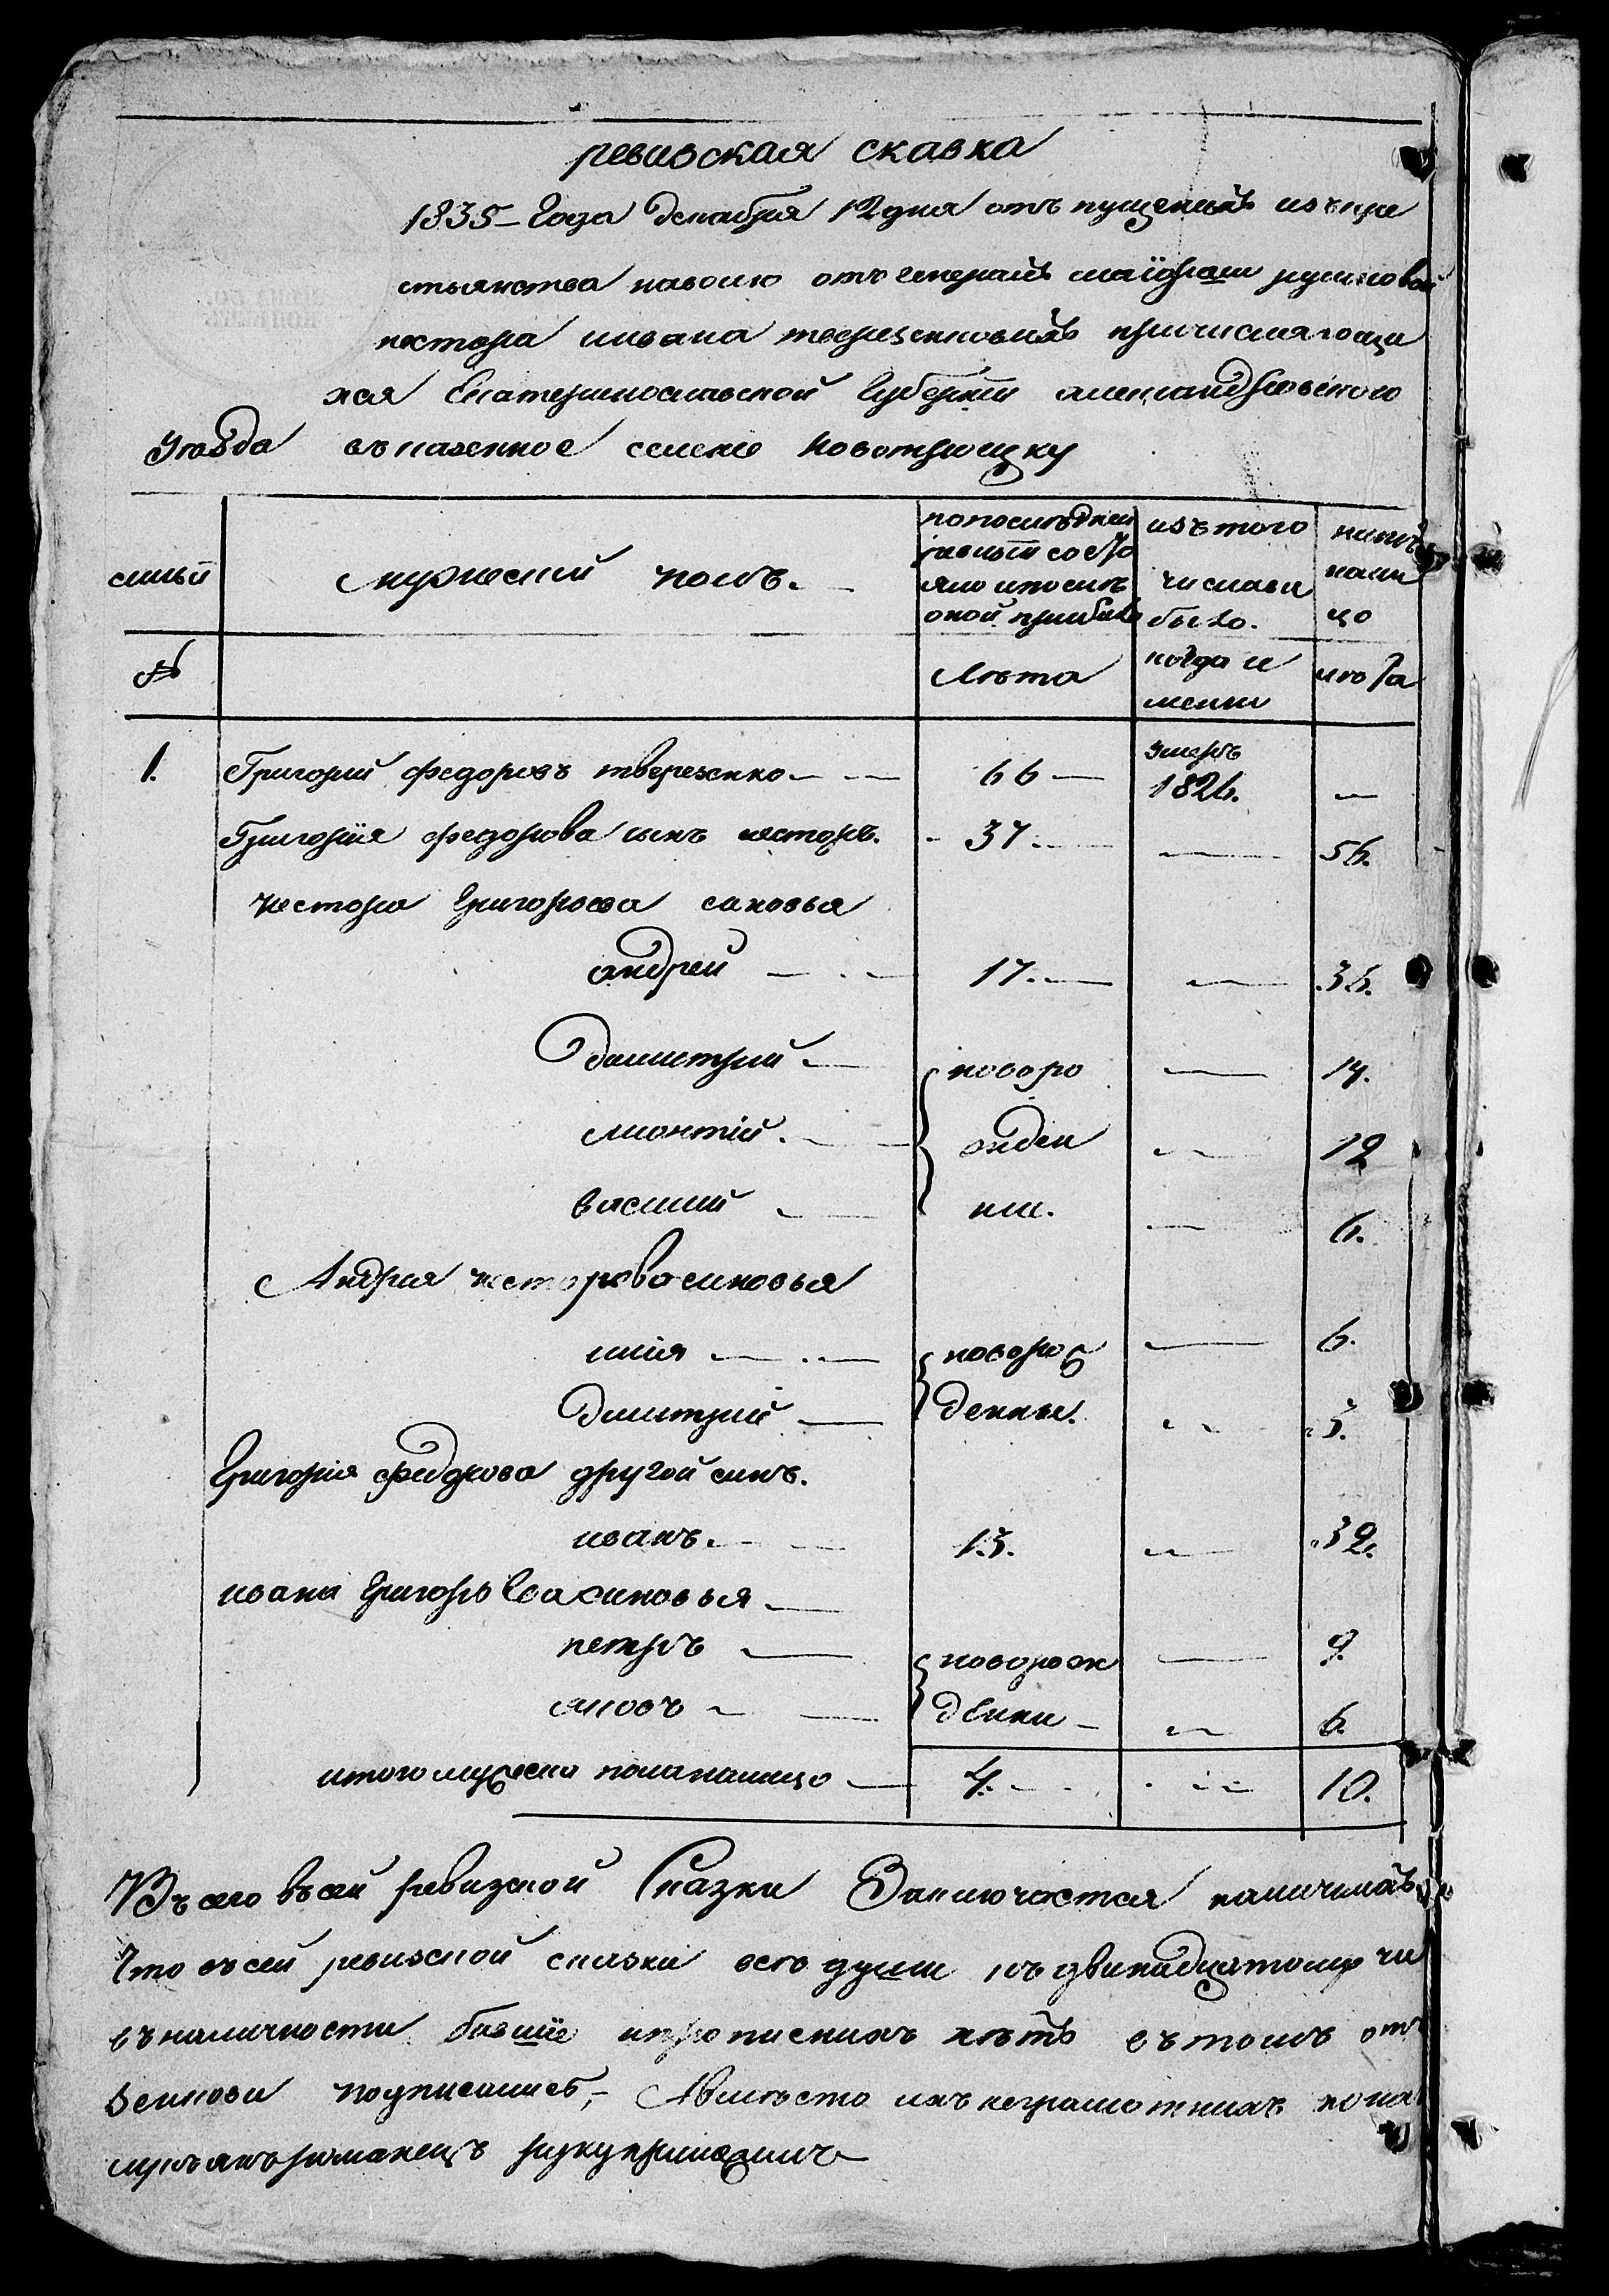 ревизская сказка
1835 - Года декабря 12 дня отъ пущеныхъ изъ кре
стьянства наволю отъ генералъ маіорши рушковой
нестора ивана тверезенковыхъ причисляющи
хся Екатеринославской Губерніи александровского
уезда въ казенное селеніе новотроицку
семьи мужеский полъ. по последней ревизіи состо яло и после оной прибыло изъ того числа вы было. ныне на ли цо
№ Лета когда и менно лета
1. Григорий федоровъ тверезенко — 66 — умеръ 1826. —
Григорія федорова сынъ несторъ. - 37. — — 56.
нестора Григорьева сановья
андрей — 17. — — 36.
дамитрий — новоро — 14.
лионтій. — жден — 12
василий — ни. — 6.
Андрия несторова синовья
илия — новорож — 6.
дмитрий — денны. — 5.
Григорія федорова другой синъ.
иванъ. — 13. — 32.
ивана Григорьева синовья —
петръ — новорож — 9.
яковъ — дении — — 6.
итого мужеска пола налицо — 4. — — 10.
Въ сего въ сей ревизской Сказки Заключается наличныхъ
Что въ сей ревизской сказки всего души къ двинадцятому чи
въ наличности бывшіе и прописнихъ нетъ въ томъ отъ
подписались, — Авместо ихъ неграмотнихъ
романецъ руку приложилъ